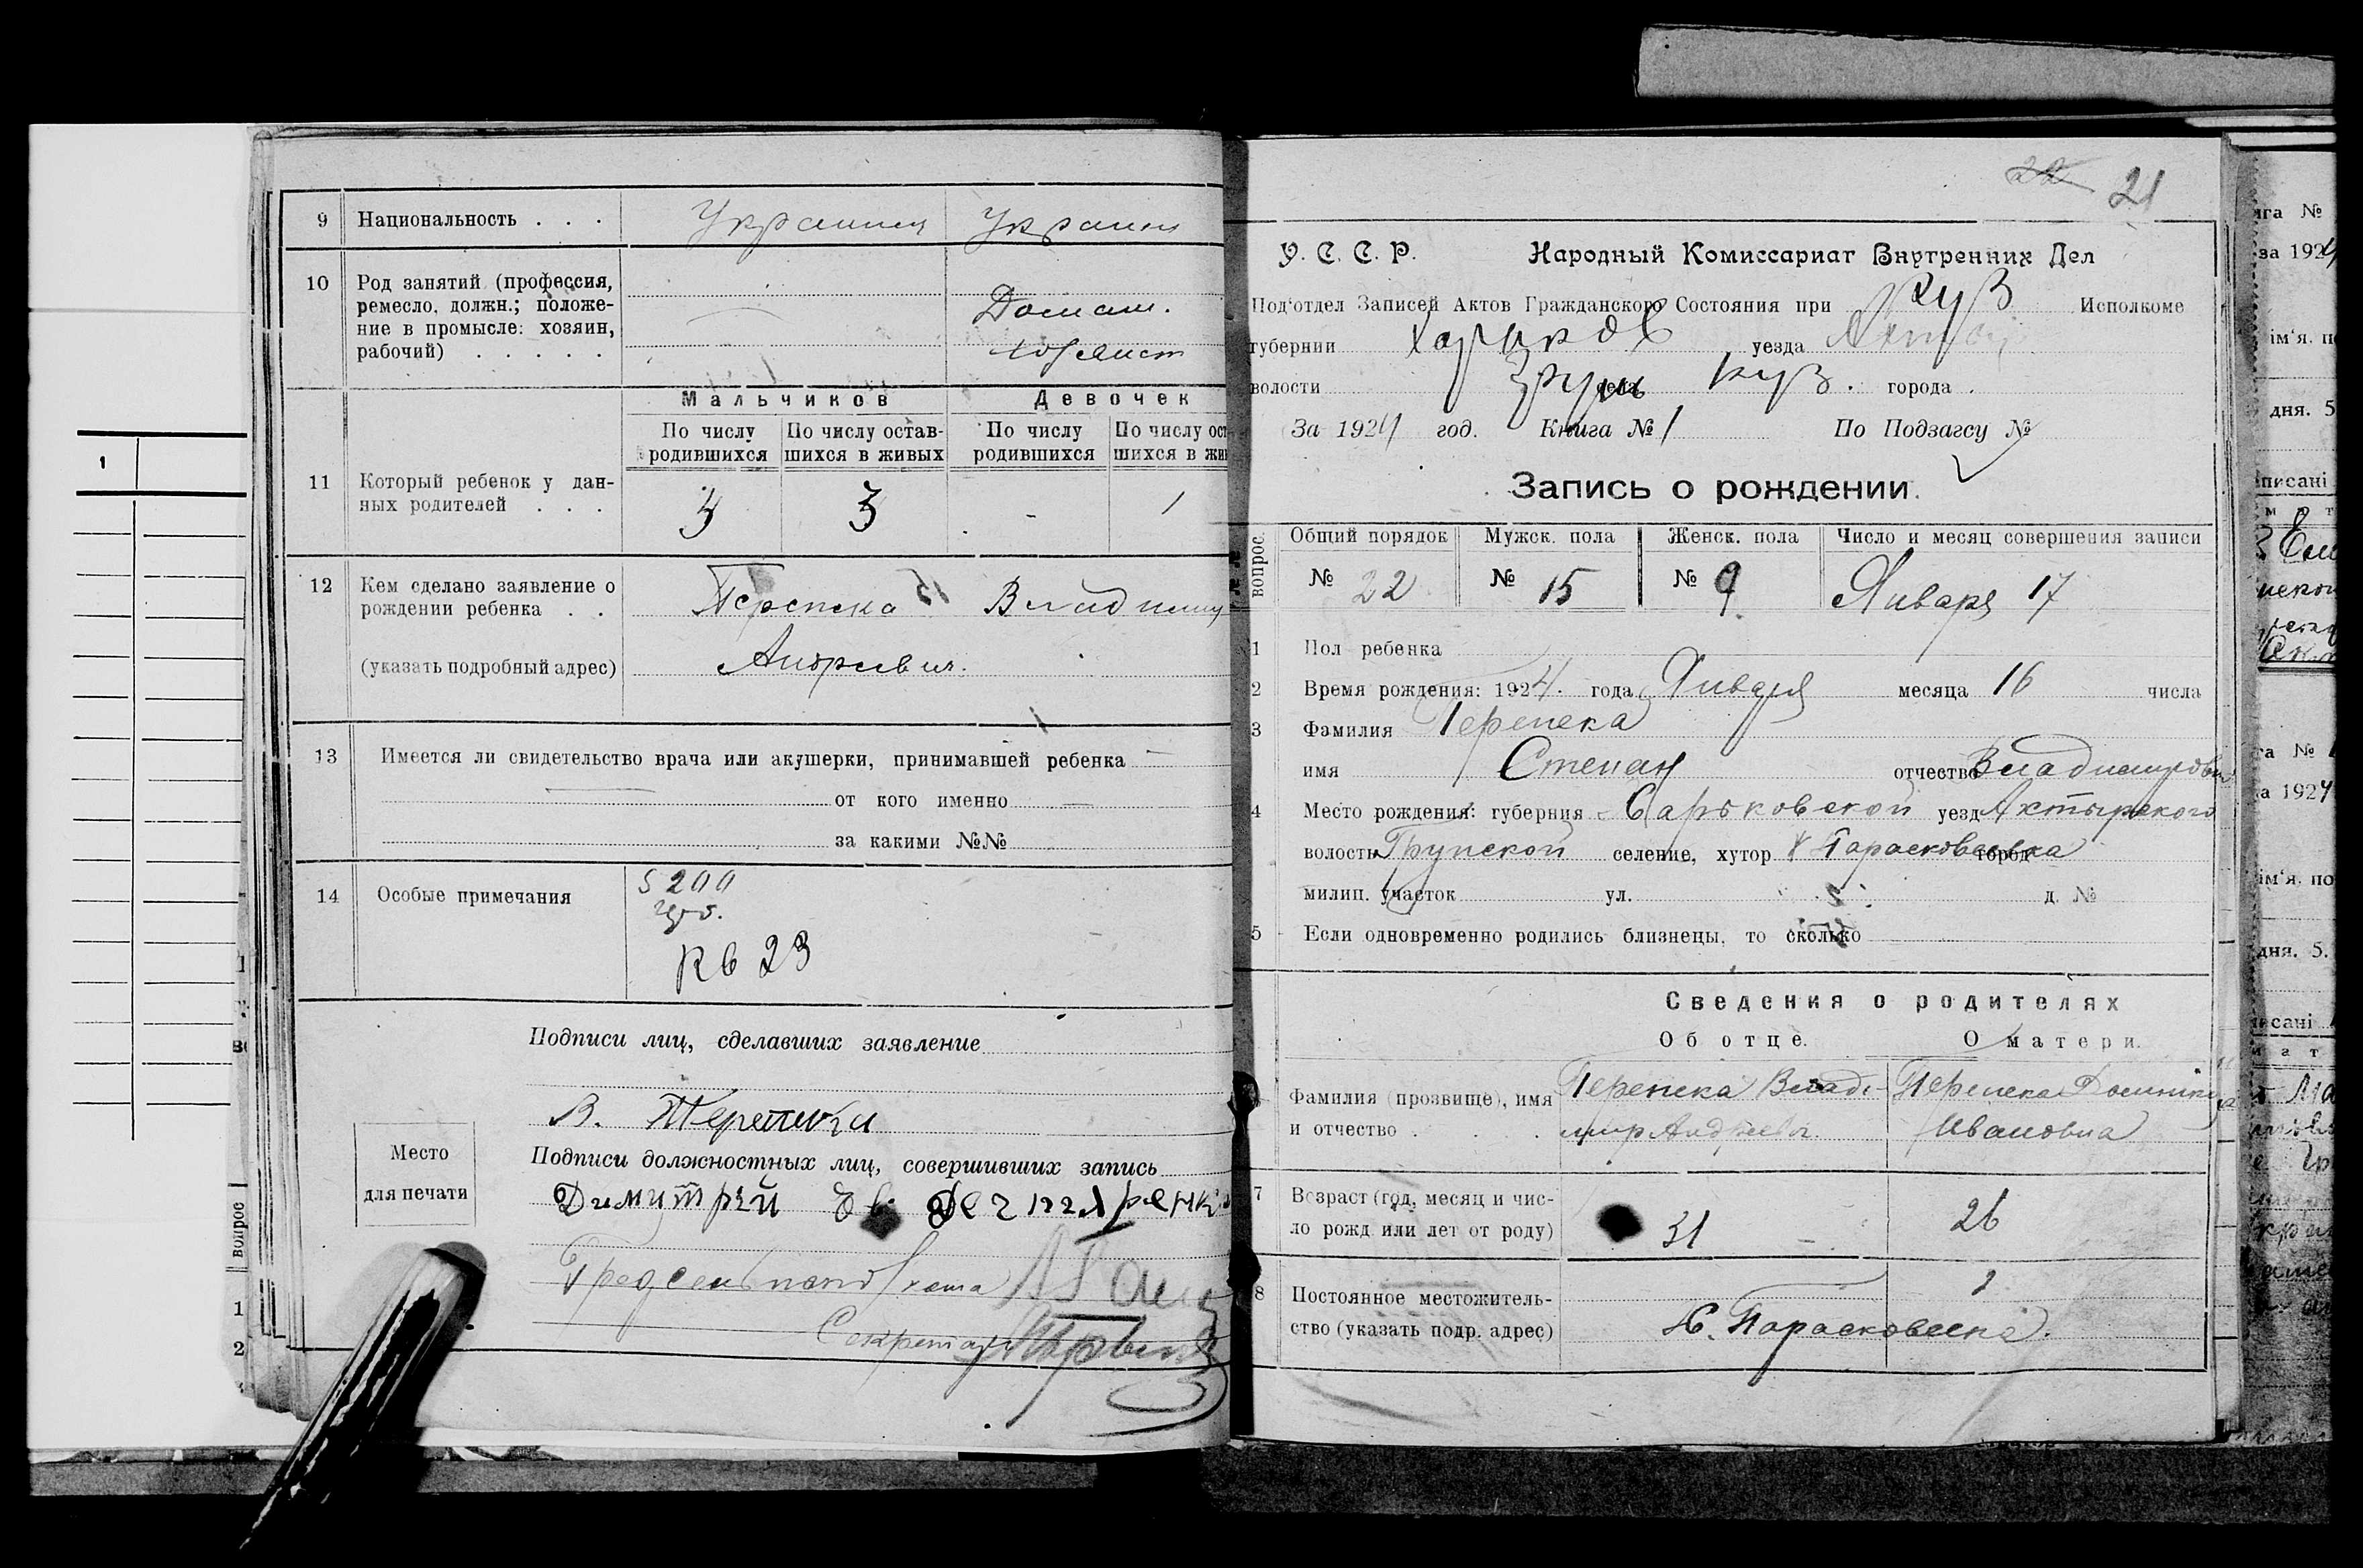 9 Национальность . . . Украинец Украин
10 Род занятий (профессия,
ремесло, должн.; положе-
ние в промысле: хозяин,
рабочий) . . . . .
Домаш.
Мальчиков Девочек
По числу родившихся По числу остав-шихся в живых По числу родившихся По числу ост шихся в жи
11 Который ребенок у дан-
ных родителей . . .
3 3 - 1
12 Кем сделано заявление о
рождении ребенка . .
Терепека Владимир
(указать подробный адрес) Андреевич.
13 Имеется ли свидетельство врача или акушерки, принимавшей ребенка —
от кого именно —
за какими №№
14 Особые примечания
5200
Кв 23
Подписи лиц, сделавших заявление
В. Терепека
Место
для печати
Подписи должностных лиц, совершивших запись
Димутрий
Секретарь
22 21
У. С. С. Р. Народный Комиссариат Внутренних Дел
Под'отдел Записей Актов Гражданского Состояния при Исполкоме
губернии Харьков уезда
волости села города
За 1924 год. Книга № 1 По Подзагсу №
Запись о рождении.
№№ вопрос.
Общий порядок Мужск. пола Женск. пола Число и месяц совершения записи
№ 22 № 15 № 9 Январь 17
1 Пол ребенка
2 Время рождения: 1924. года Января месяца 16 числа
3 Фамилия Терепека
имя Степан отчество Владимирович
4 Место рождения: губерния Харьковской уезд Ахтырского
волость Грунской селение, хутор х Парасковеевка город
милиц. участок ул. д. №
5 Если одновременно родились близнецы, то сколько
Сведения о родителях
Об отце. О матери.
Фамилия (прозвище), имя
и отчество . . .
Терепека Влади-
мир Андреевич.
Терепека
Ивановна
7 Возраст (год, месяц и чис-
ло рожд. или лет от роду)
31 26
8 Постоянное местожитель-
ство (указать подр. адрес)
Х. Парасковеевка.